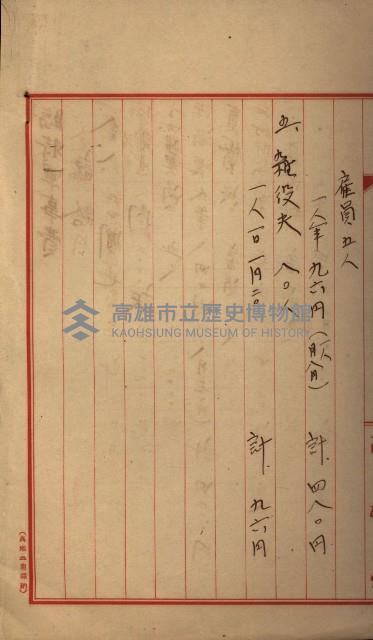 雇員 五人
一人年 九六円(一人一月八円) 計 四八〇円
五、雑役夫 八〇人
一人一日 一円二〇 計 九六円
高雄市立歷史博物館
KAOHSIUNG MUSEUM OF HISTORY